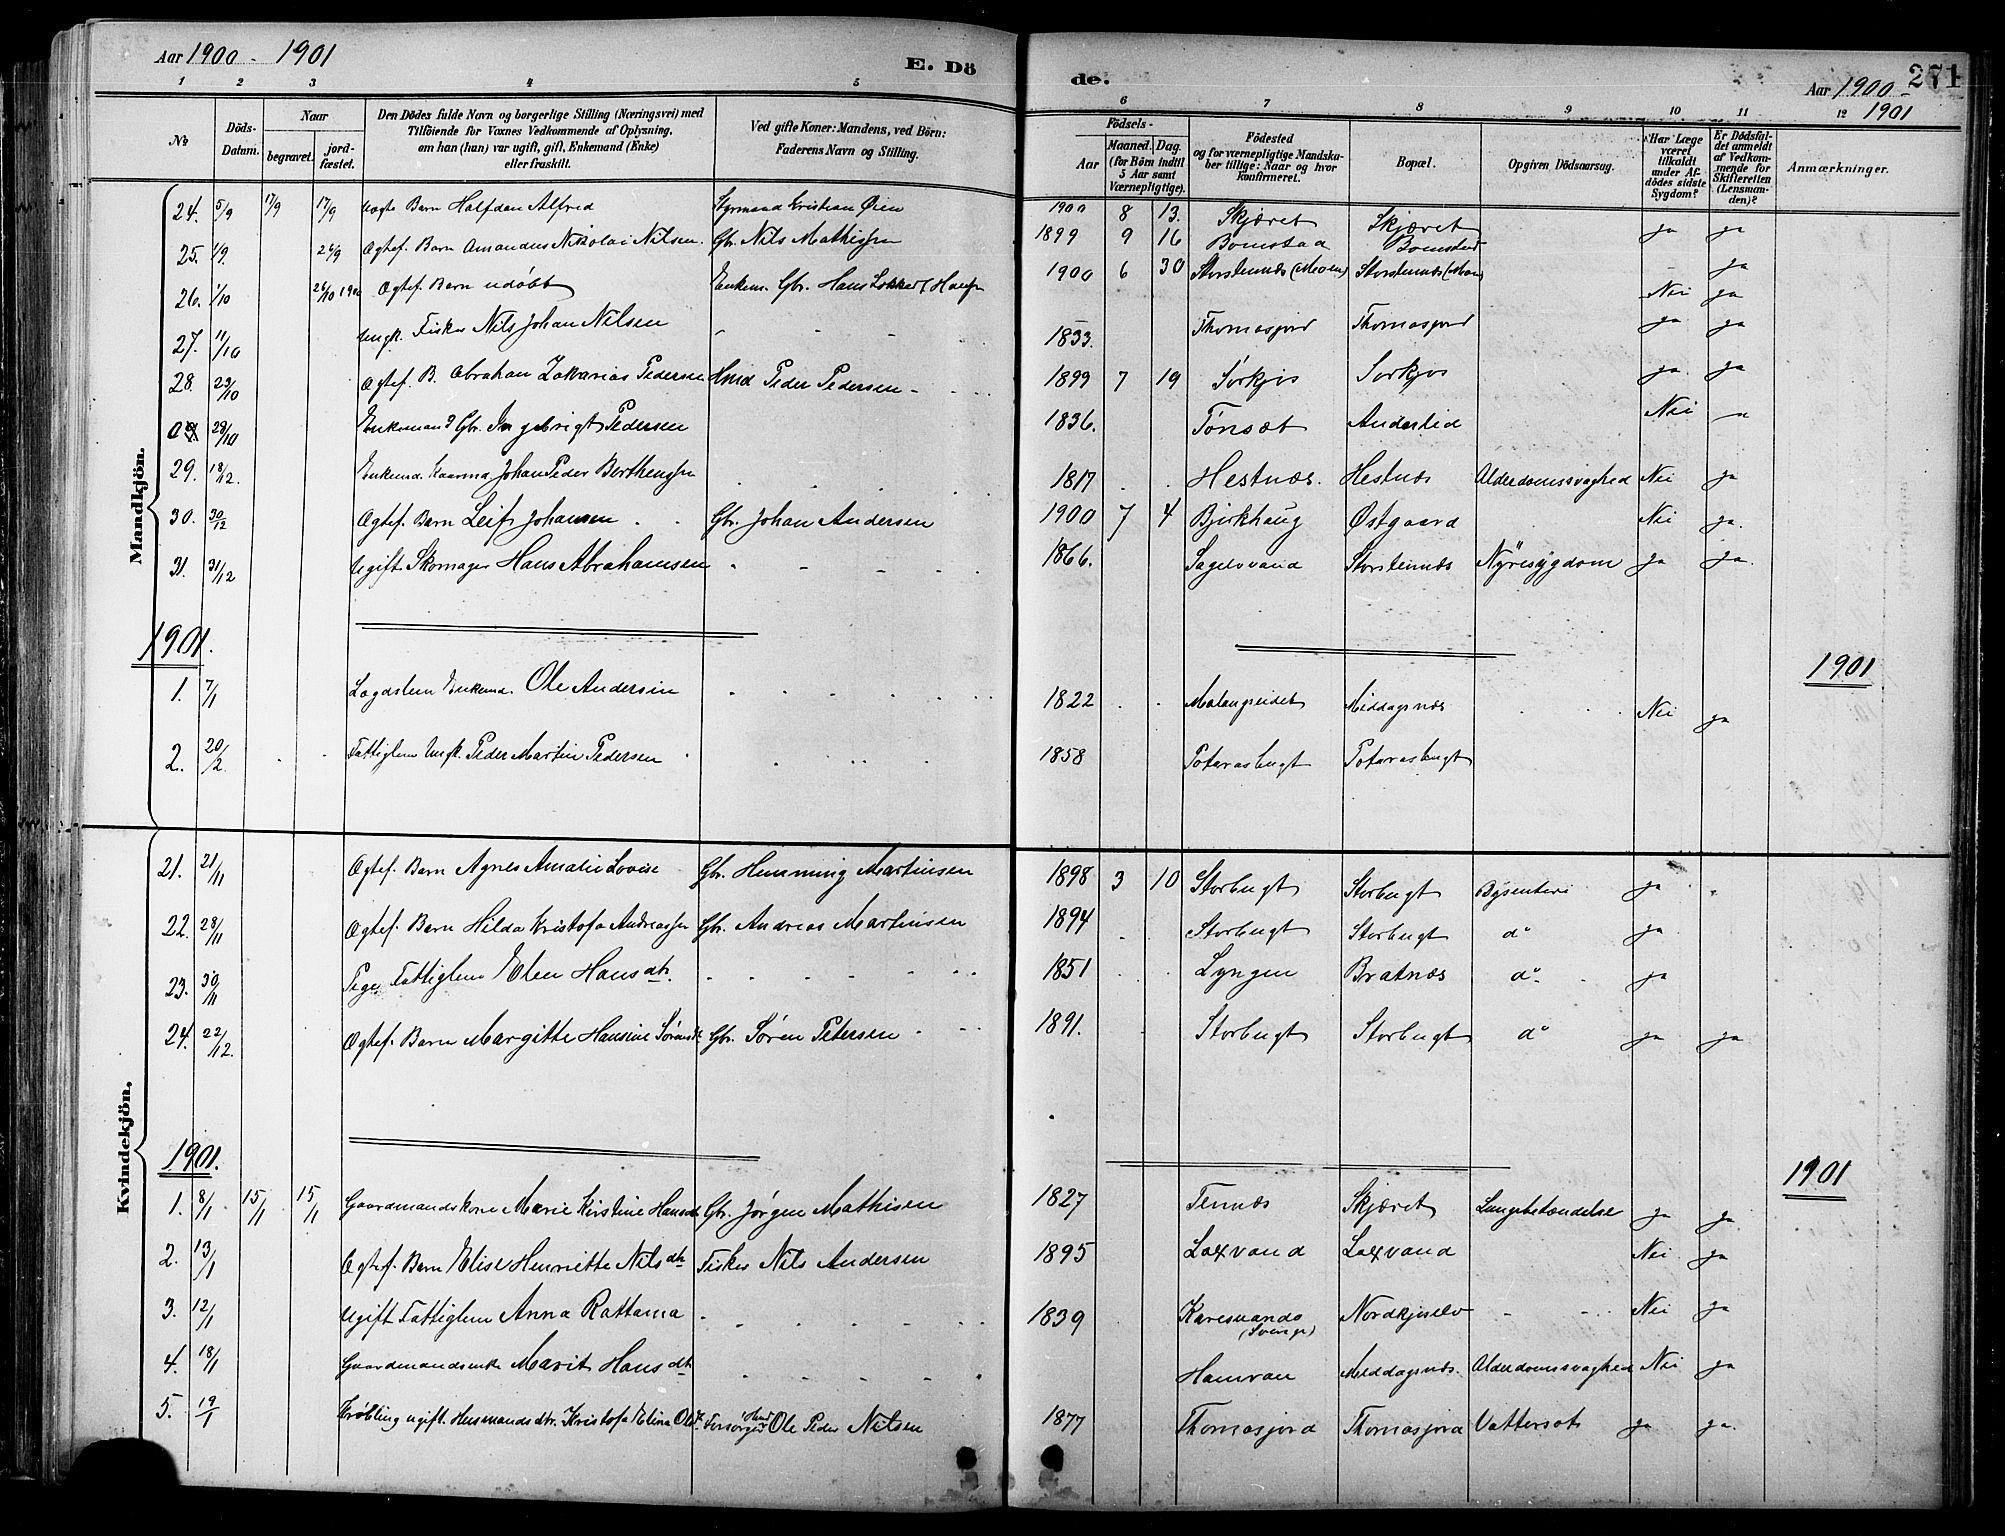 Aar 1900 - 1901
E. Dö
de.
271
Aar 1900 -
1901
1 2 3 4 5
6 7 8 9 10 11 12
No
Döds-
Datum.
Naar
begravet.
jord-
fæstet.
Den Dödes fulde Navn og borgerlige Stilling (Næringsvei) med
Tilföiende for Voxnes Vedkommende af Oplysning,
om han (hun) var ugift, gift, Enkemand (Enke)
eller fraskilt.
Ved gifte Koner: Mandens, ved Börn:
Faderens Navn og Stilling.
Födsels-
Aar
Maaned. Dag.
(for Börn indtil
5 Aar samt
Værnepligtige).
Födested
og for værnepligtige Mandska-
ber tillige: Naar og hvor
konfirmeret.
Bopæl.
Opgiven Dödsaarsag.
Har Læge
været
tilkaldt
under Af-
dödes sidste
Sygdom?
Er Dödsfal-
det anmeldt
af Vedkom-
mende for
Skifteretten
(Lensman-
den)?
Anmærkninger.
Mandkjön.
24. 5/9 17/9 17/9 Uægte Barn Halfdan Alfred Styrmand Kristian Øien 1900 8 13. Skjæret Skjæret ja ja
25. 1/9. 26/9 Ægtef. Barn Amandus Nikolai Nilsen. Gbr. Nils Mathissen 1899 9 16 Bomstad Bomstad - ja
26. 1/10 26/10 1900 Ægtef. Barn udøbt Enkem. Gbr. Hans 1900 6 30 Storstennæs (Moen) Storstennæs (Moen) Nei ja
27. 11/10 Ungk. Fisker Nils Johan Nilsen 1833. Thomasjord Thomasjord ja ja
28. 23/10 Ægtef. B. Abrahan Zakarias Pedersen Hmd Peder Pedersen 1899 7 19 Sørkjos Sørkjos ja ja
28/10 Enkemand Gbr. Ingebrigt Pedersen 1836. Tønsæt Anderlid Nei
29. 18/12. Enkemd. Kaarmd Johan Peder Berthensen 1817 Hestnæs. Hestnæs Alderdomssvaghed Nei ja
30. 30/12 Ægtef. Barn Leif Johansen Gbr. Johan Andersen 1900 7 4 Bjerkhaug Østgaard Nei ja.
31. 31/12 Ugift Skomager Hans Abrahamsen 1866. Sagelvvand Storstennæs Nyresygdom ja ja.
1901.
1901
1. 7/1 Lægdslem Enkemd. Ole Andersen 1822 Malangseidet Middagsnæs Nei ja
2. 20/2. Fattiglem Ungk. Peder Martin Pedersen 1858 Potavasbugt Potavasbugt
Kvindekjön.
21. 21/11 Ægtef. Barn Agnes Amalie Lovise Gbr. Hemming Martinsen 1898 3 10 Storbugt Storbugt Dysenteri ja
22. 28/11 Ægtef. Barn Hilda Kristofa Andreassen Gbr. Andreas Martinsen 1894 Storbugt Storbugt do ja
23. 30/11 Pige Fattiglem Elen Hansdtr. 1851 Lyngen Bratnæs do ja
24. 22/12. Ægtef. Barn Margitte Hansine Sørensdr Gbr. Søren Petersen 1891. Storbugt Storbugt do ja ja
1901.
1901
1. 8/1 15/1 15/1 Gaardmandskone Marie Kirstine Hansdr Gbr. Jørgen Mathisen 1827 Tennæs Skjæret Lungebetændelse ja ja
2. 13/1 Ægtef. Barn Elise Henriette Nilsdtr Fisker Nils Andersen 1895 Laxvand Laxvand Nei ja
3. 12/1 Ugift Fattiglem Anna Rattama 1839 Karesuando (Sverige) Nordkjoselv Nei ja
4. 18/1 Gaardmandsenke Marit Hansdtr Hamvan Middagsnæs. Alderdomssvaghed Nei ja
5. 19/1 Krøbling ugift. Husmandsdtr. Kristofa Elina Olsdr. Forsørger Hmd Ole Peder Nilsen 1877 Thomasjord Thomasjord Vattersot ja ja.